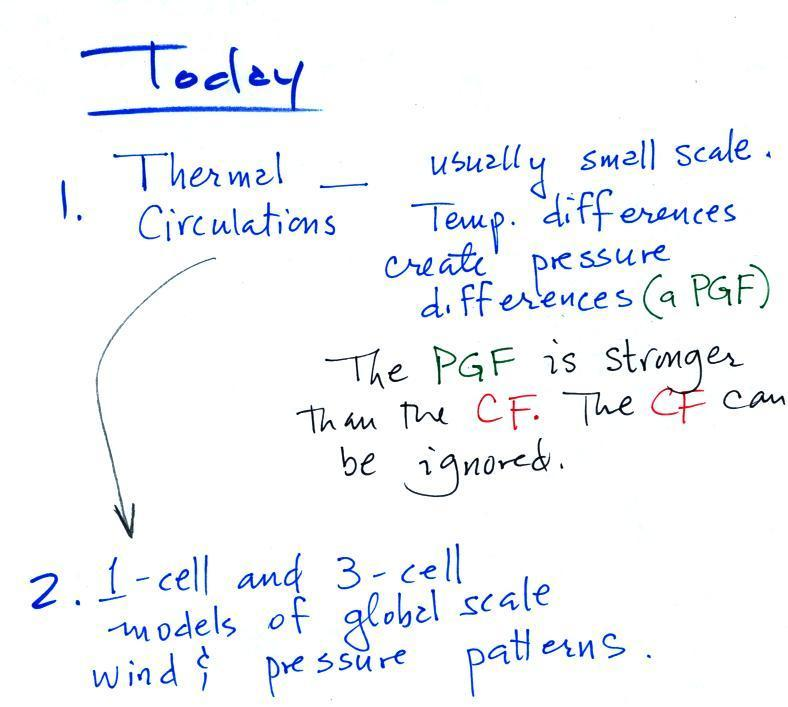 Today
1. Thermal — usually small scale.
Circulations Temp. differences
create pressure
differences (a PGF)
The PGF is stronger
than the CF. The CF can
be ignored.
2. 1-cell and 3-cell
models of global scale
wind & pressure patterns.